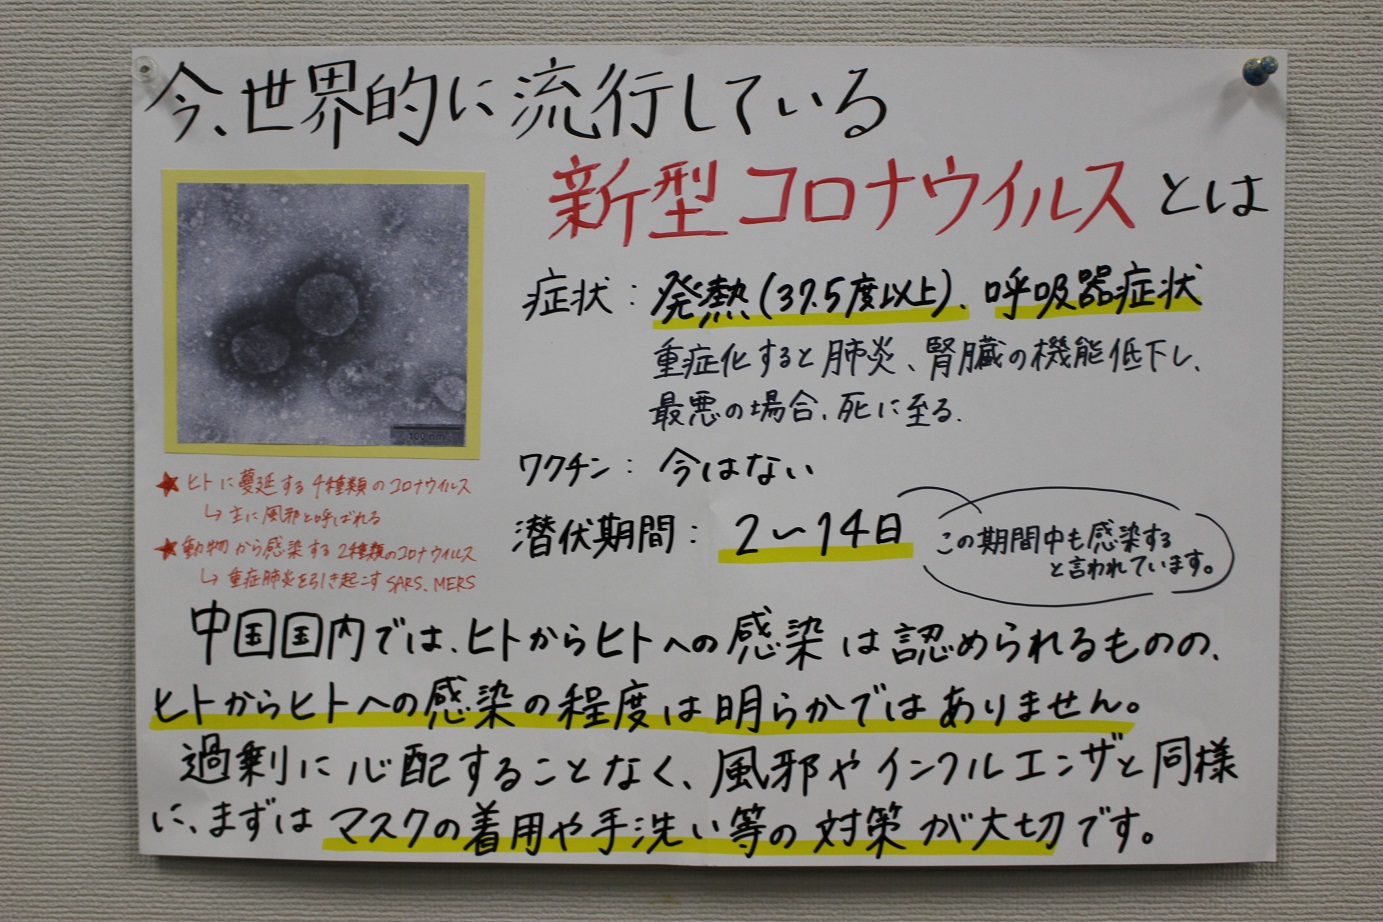 今、世界的に流行している
新型コロナウイルスとは
症状：発熱(37.5度以上)、呼吸器症状
重症化すると肺炎、腎臓の機能低下し、
最悪の場合、死に至る.
ワクチン：今はない
潜伏期間：2〜14日
この期間中も感染する
と言われています。
100 nm
★ヒトに蔓延する4種類のコロナウイルス
↳主に風邪と呼ばれる
★動物から感染する2種類のコロナウイルス
↳重症肺炎を引き起こすSARS、MERS
中国国内では、ヒトからヒトへの感染は認められるものの、
ヒトからヒトへの感染の程度は明らかではありません。
過剰に心配することなく、風邪やインフルエンザと同様
に、まずはマスクの着用や手洗い等の対策が大切です。